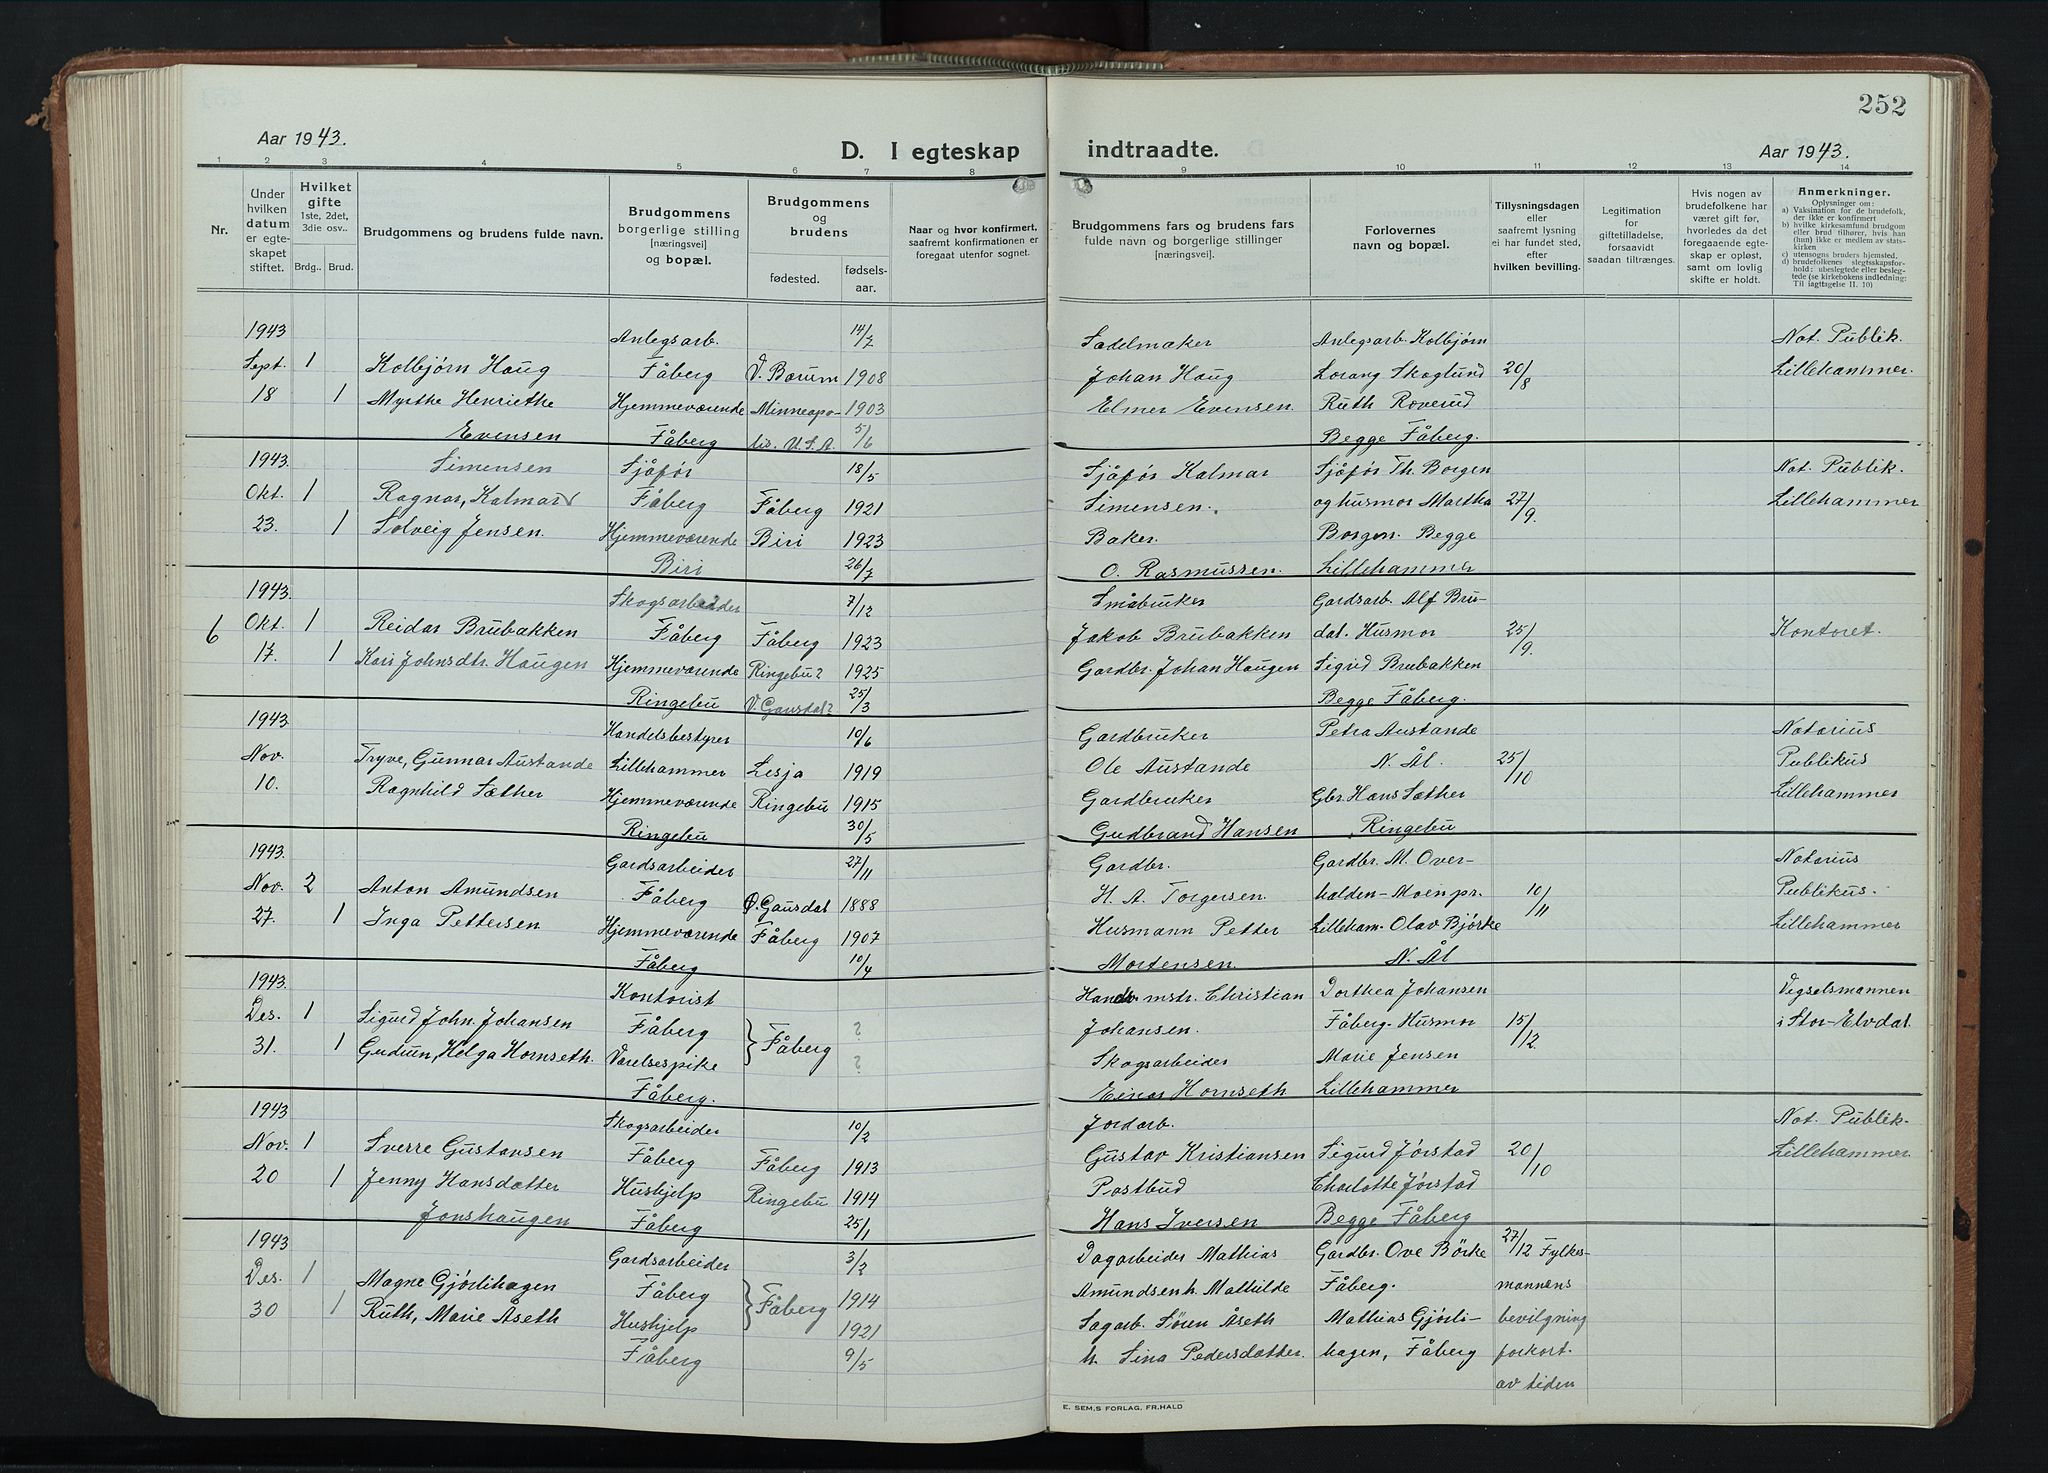 252
Aar 1943.
D. I egteskap indtraadte.
Aar 1943.
1 2 3 4 5 6 7 8 9 10 11 12 13 14
Nr.
Under hvilken datum er egteskapet stiftet.
Hvilket gifte
1ste, 2det, 3die osv..
Brdg.. Brud.
Brudgommens og brudens fulde navn.
Brudgommens borgerlige stilling [næringsvei] og bopæl.
Brudgommens og brudens
fødested. fødselsaar.
Naar og hvor konfirmert, saafremt konfirmationen er foregaat utenfor sognet.
Brudgommens fars og brudens fars fulde navn og borgerlige stillinger [næringsvei].
Forlovernes navn og bopæl.
Tillysningsdagen eller saafremt lysning ei har fundet sted, efter hvilken bevilling.
Legitimation for giftetilladelse, forsaavidt saadan tiltrænges.
Hvis nogen av brudefolkene har været gift før, hvorledes da det foregaaende egteskap er opløst, samt om lovlig skifte er holdt.
Anmerkninger.
Oplysninger om:
a) Vaksination for de brudefolk, der ikke er konfirmert
b) hvilke kirkesamfund brudgom eller brud tilhører, hvis han (hun) ikke er medlem av statskirken
c) utensogns bruders hjemsted.
d) brudefolkenes slegtsskapsforhold: ubeslegtede eller beslegtede (se kirkebokens indledning: Til iagttagelse II. 10)
1943 Anlegsarb. 14/7 Sadelmaker Anlegsarb. Kolbjørn Not. Publik.
Sept. 1 Kolbjørn Haug Fåberg V. Bærum 1908 Johan Haug Lorang Skoglund 20/8 Lillehammer.
18 1 Myrthe Henriethe Hjemmeværende Minneapo- 1903 Elmer Evensen. Ruth Roverud
Evensen Fåberg lis. U.S.A. 5/6 Begge Fåberg.
1943. Simensen Sjåfør 18/5 Sjåfør Kalmar Sjåfør Th. Borgen Not. Publik.
Okt. 1 Ragnar, Kalmar Fåberg Fåberg 1921 Simensen. og husmor Martha 27/9. Lillehammer
23. 1 Solveig Jensen. Hjemmeværende Biri 1923 Baker. Borgen. Begge
Biri 26/7 O. Rasmussen. Lillehammer
1943. Skogsarbeider 7/12 Småbruker Gardsarb. Alf Bru-
6 Okt. 1 Reidar Brubakken Fåberg Fåberg 1923 Jakob Brubakken dal. Husmor 25/9. Kontoret.
17. 1 Kari Johnsdtr. Haugen Hjemmeværende Ringebu? 1925 Gardbr. Johan Haugen Sigrid Brubakken
Ringebu V. Gausdal? 25/3 Begge Fåberg.
1943. Handelsbestyrer 10/6 Gardbruker Petra Austande Notarius
Nov. Tryve, Gunnar Austande Lillehammer Lesja 1919 Ole Austande N. Ål. 25/10 Publikus
10. Ragnhild Sæther Hjemmeværende Ringebu 1915 Gardbruker Gbr. Hans Sæther Lillehammer
Ringebu 30/5 Gudbrand Hansen Ringebu
1943. Gardsarbeider 27/11 Gardbr. Gardbr. M. Over- Notarius
Nov. 2 Anton Amundsen Fåberg Ø. Gausdal 1888 H. A. Torgersen. halden - Moen pr. 10/11 Publikus.
27. 1 Inga Pettersen Hjemmeværende Fåberg 1907 Husmann Petter Lilleham. Olav Bjørke Lillehammer
Fåberg 10/4 Mortensen. N. Ål
1943. Kontorist Handv. mstr. Christian Dorthea Johansen Vigselsmannen
Des. 1 Sigurd John. Johansen Fåberg Fåberg ? Johansen. Fåberg. Husmor 15/12. i Stor-Elvdal.
31. 1 Gudrun, Helga Hornseth. Værelsespike ? Skogsarbeider Marie Jensen
Fåberg. Einar Hornseth Lillehammer
1943 Skogsarbeider 10/2 Jordarb. Not. Publik.
Nov. 1 Sverre Gustavsen Fåberg Fåberg 1913 Gustav Kristiansen Sigurd Jørstad 20/10 Lillehammer
20 1 Jenny Hansdatter Hushjelp Ringebu 1914 Postbud Charlotte Jørstad
Jonshaugen Fåberg 25/1 Hans Iversen Begge Fåberg
1943 Gardsarbeider 3/2 Dagarbeider Mathias Gardbr. Ove Børke 27/12 Fylkes-
Des. 1 Magne Gjørlihagen Fåberg Fåberg 1914 Amundsen h. Mathilde Fåberg. mannens
30 1 Ruth, Marie Åseth Hushjelp 1921 Sagarb. Søren Åseth Mathias Gjørli- bevilgning
Fåberg 9/5 h. Sina Pedersdatter. hagen, Fåberg forkort.
av tiden
E. SEM,S FORLAG, FR.HALD